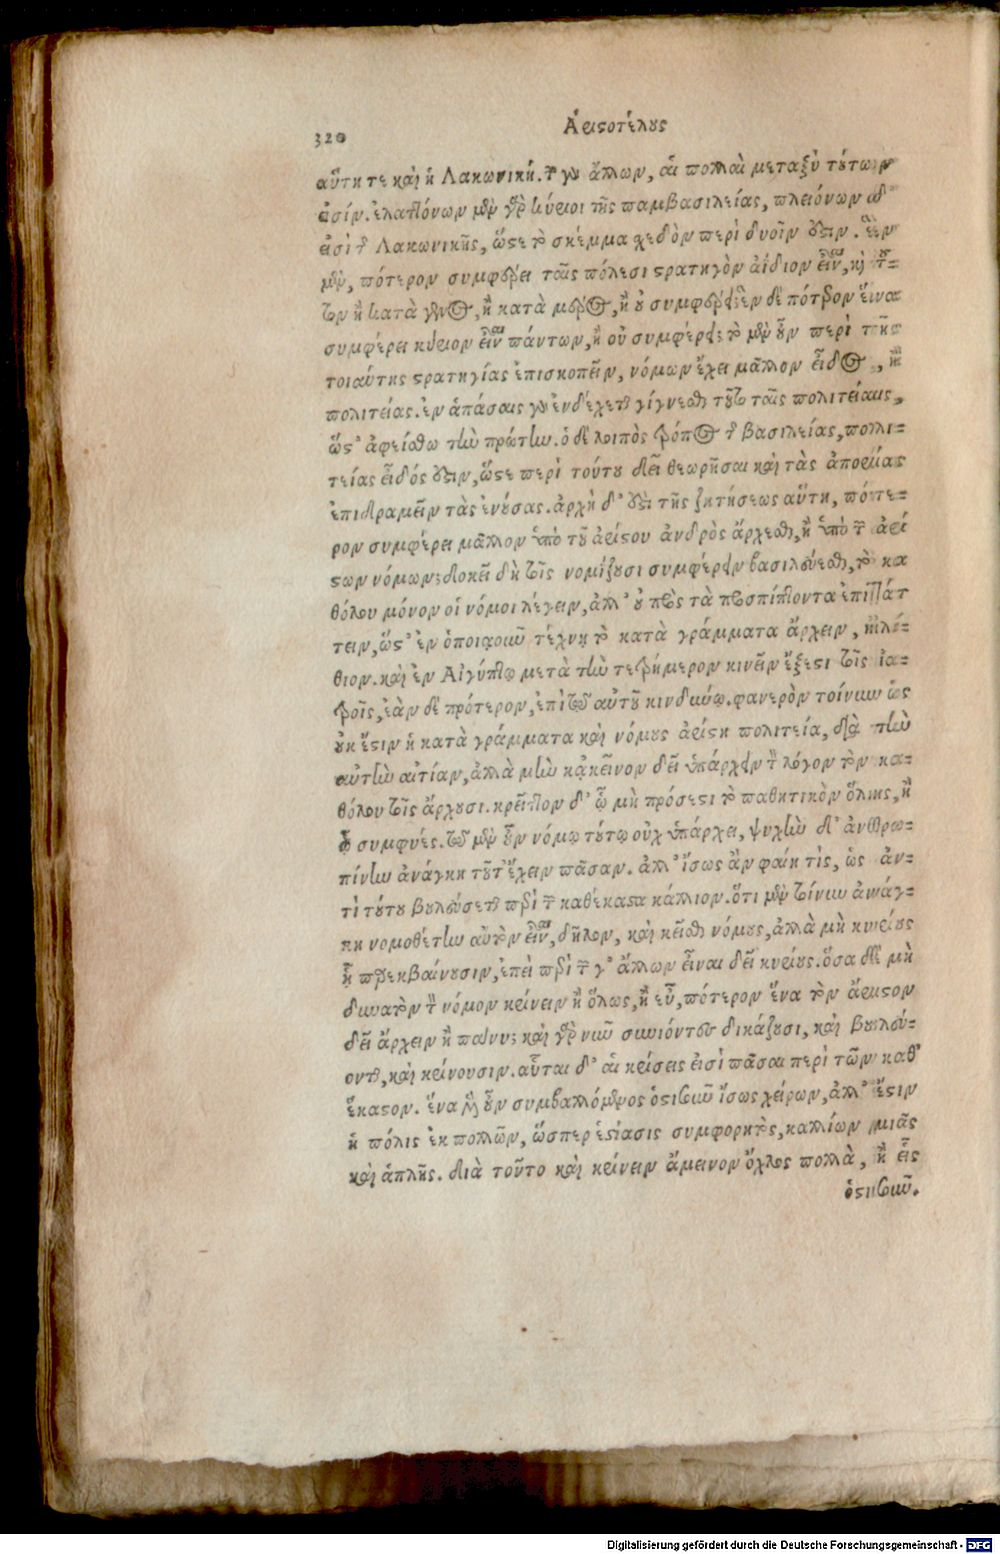 320
Ἀριστοτέλους
αὕτη τε καὶ ἡ Λακωνική. τῶν γὰρ ἄλλων, αἱ πολλαὶ μεταξὺ τούτων
εἰσίν. ἐλαττόνων μὲν γὰρ κύριοι τῆς παμβασιλείας, πλειόνων δ᾽
εἰσὶ τῆς Λακωνικῆς, ὥστε τὸ σκέμμα σχεδὸν περὶ δυοῖν ἐστιν. ἓν
μὲν, πότερον συμφέρει ταῖς πόλεσι στρατηγὸν ἀΐδιον εἶναι, καὶ τοῦ-
τον ἢ κατὰ γένος, ἢ κατὰ μέρος, ἢ οὐ συμφέρει; ἓν δὲ πότερον ἕνα
συμφέρει κύριον εἶναι πάντων, ἢ οὐ συμφέρει; τὸ μὲν οὖν περὶ τῆς
τοιαύτης στρατηγίας ἐπισκοπεῖν, νόμων ἔχει μᾶλλον εἶδος, ἢ
πολιτείας. ἐν ἁπάσαις γὰρ ἐνδέχεται γίγνεσθαι τοῦτο ταῖς πολιτείαις,
ὥστ᾽ ἀφείσθω τὴν πρώτην. ὁ δὲ λοιπὸς τρόπος τῆς βασιλείας, πολι-
τείας εἶδός ἐστιν, ὥστε περὶ τούτου δεῖ θεωρῆσαι καὶ τὰς ἀπορίας
ἐπιδραμεῖν τὰς ἐνούσας. ἀρχὴ δ᾽ ἐστὶ τῆς ζητήσεως αὕτη, πότε-
ρον συμφέρει μᾶλλον ὑπὸ τοῦ ἀρίστου ἀνδρὸς ἄρχεσθαι, ἢ ὑπὸ τῶν ἀρί
στων νόμων; δοκεῖ δὴ τοῖς νομίζουσι συμφέρειν βασιλεύεσθαι, τὸ κα
θόλου μόνον οἱ νόμοι λέγειν, ἀλλ᾽ οὐ πρὸς τὰ προσπίπτοντα ἐπιτάτ
τειν, ὥστ᾽ ἐν ὁποιᾳοῦν τέχνῃ τὸ κατὰ γράμματα ἄρχειν, ἠλί-
θιον. καὶ ἐν Αἰγύπτῳ μετὰ τὴν τετρήμερον κινεῖν ἔξεστι τοῖς ἰα-
τροῖς, ἐὰν δὲ πρότερον, ἐπὶ τῷ αὐτοῦ κινδύνῳ. φανερὸν τοίνυν ὡς
οὐκ ἔστιν ἡ κατὰ γράμματα καὶ νόμους ἀρίστη πολιτεία, διὰ τὴν
αὐτὴν αἰτίαν, ἀλλὰ μὴν κἀκεῖνον δεῖ ὑπάρχειν τὸν λόγον τὸν κα-
θόλου τοῖς ἄρχουσι. κρεῖττον δ᾽ ᾧ μὴ πρόσεστι τὸ παθητικὸν ὅλως, ἢ
ᾧ συμφυές. τῷ μὲν οὖν νόμῳ τούτῳ οὐχ ὑπάρχει, ψυχὴν δ᾽ ἀνθρω-
πίνην ἀνάγκη τοῦτ᾽ ἔχειν πᾶσαν. ἀλλ᾽ ἴσως ἂν φαίη τὶς, ὡς ἀν-
τὶ τούτου βουλεύσεται περὶ τῶν καθέκαστα κάλλιον. ὅτι μὲν τοίνυν ἀνάγ-
κη νομοθέτην αὐτὸν εἶναι, δῆλον, καὶ κεῖσθαι νόμους, ἀλλὰ μὴ κυρίους
ᾗ παρεκβαίνουσιν, ἐπεὶ περὶ τῶν γ᾽ ἄλλων εἶναι δεῖ κυρίους. ὅσα δὲ μὴ
δυνατὸν τὸν νόμον κρίνειν ἢ ὅλως, ἢ εὖ, πότερον ἕνα τὸν ἄριστον
δεῖ ἄρχειν ἢ πάντας; καὶ γὰρ νῦν συνιόντες δικάζουσι, καὶ βουλεύ-
ονται, καὶ κρίνουσιν. αὗται δ᾽ αἱ κρίσεις εἰσὶ πᾶσαι περὶ τῶν καθ᾽
ἕκαστον. ἕνα μὲν οὖν συμβαλλόμενος ὁστισοῦν ἴσως χείρων, ἀλλ᾽ ἔστιν
ἡ πόλις ἐκ πολλῶν, ὥσπερ ἑστίασις συμφορητὸς, καλλίων μιᾶς
καὶ ἁπλῆς. διὰ τοῦτο καὶ κρίνειν ἄμεινον ὄχλος πολλὰ, ἢ εἷς
ὁστισοῦν.
Digitalisierung gefördert durch die Deutsche Forschungsgemeinschaft - DFG